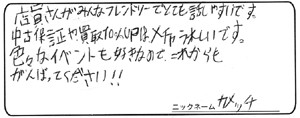 店員さんがみんなフレンドリーでとても話しやすいです。
中古保証や買取10%UPはメチャうれしいです。
色々なイベントも好きなので、これからも
がんばってください!!
ニックネーム カメッチ